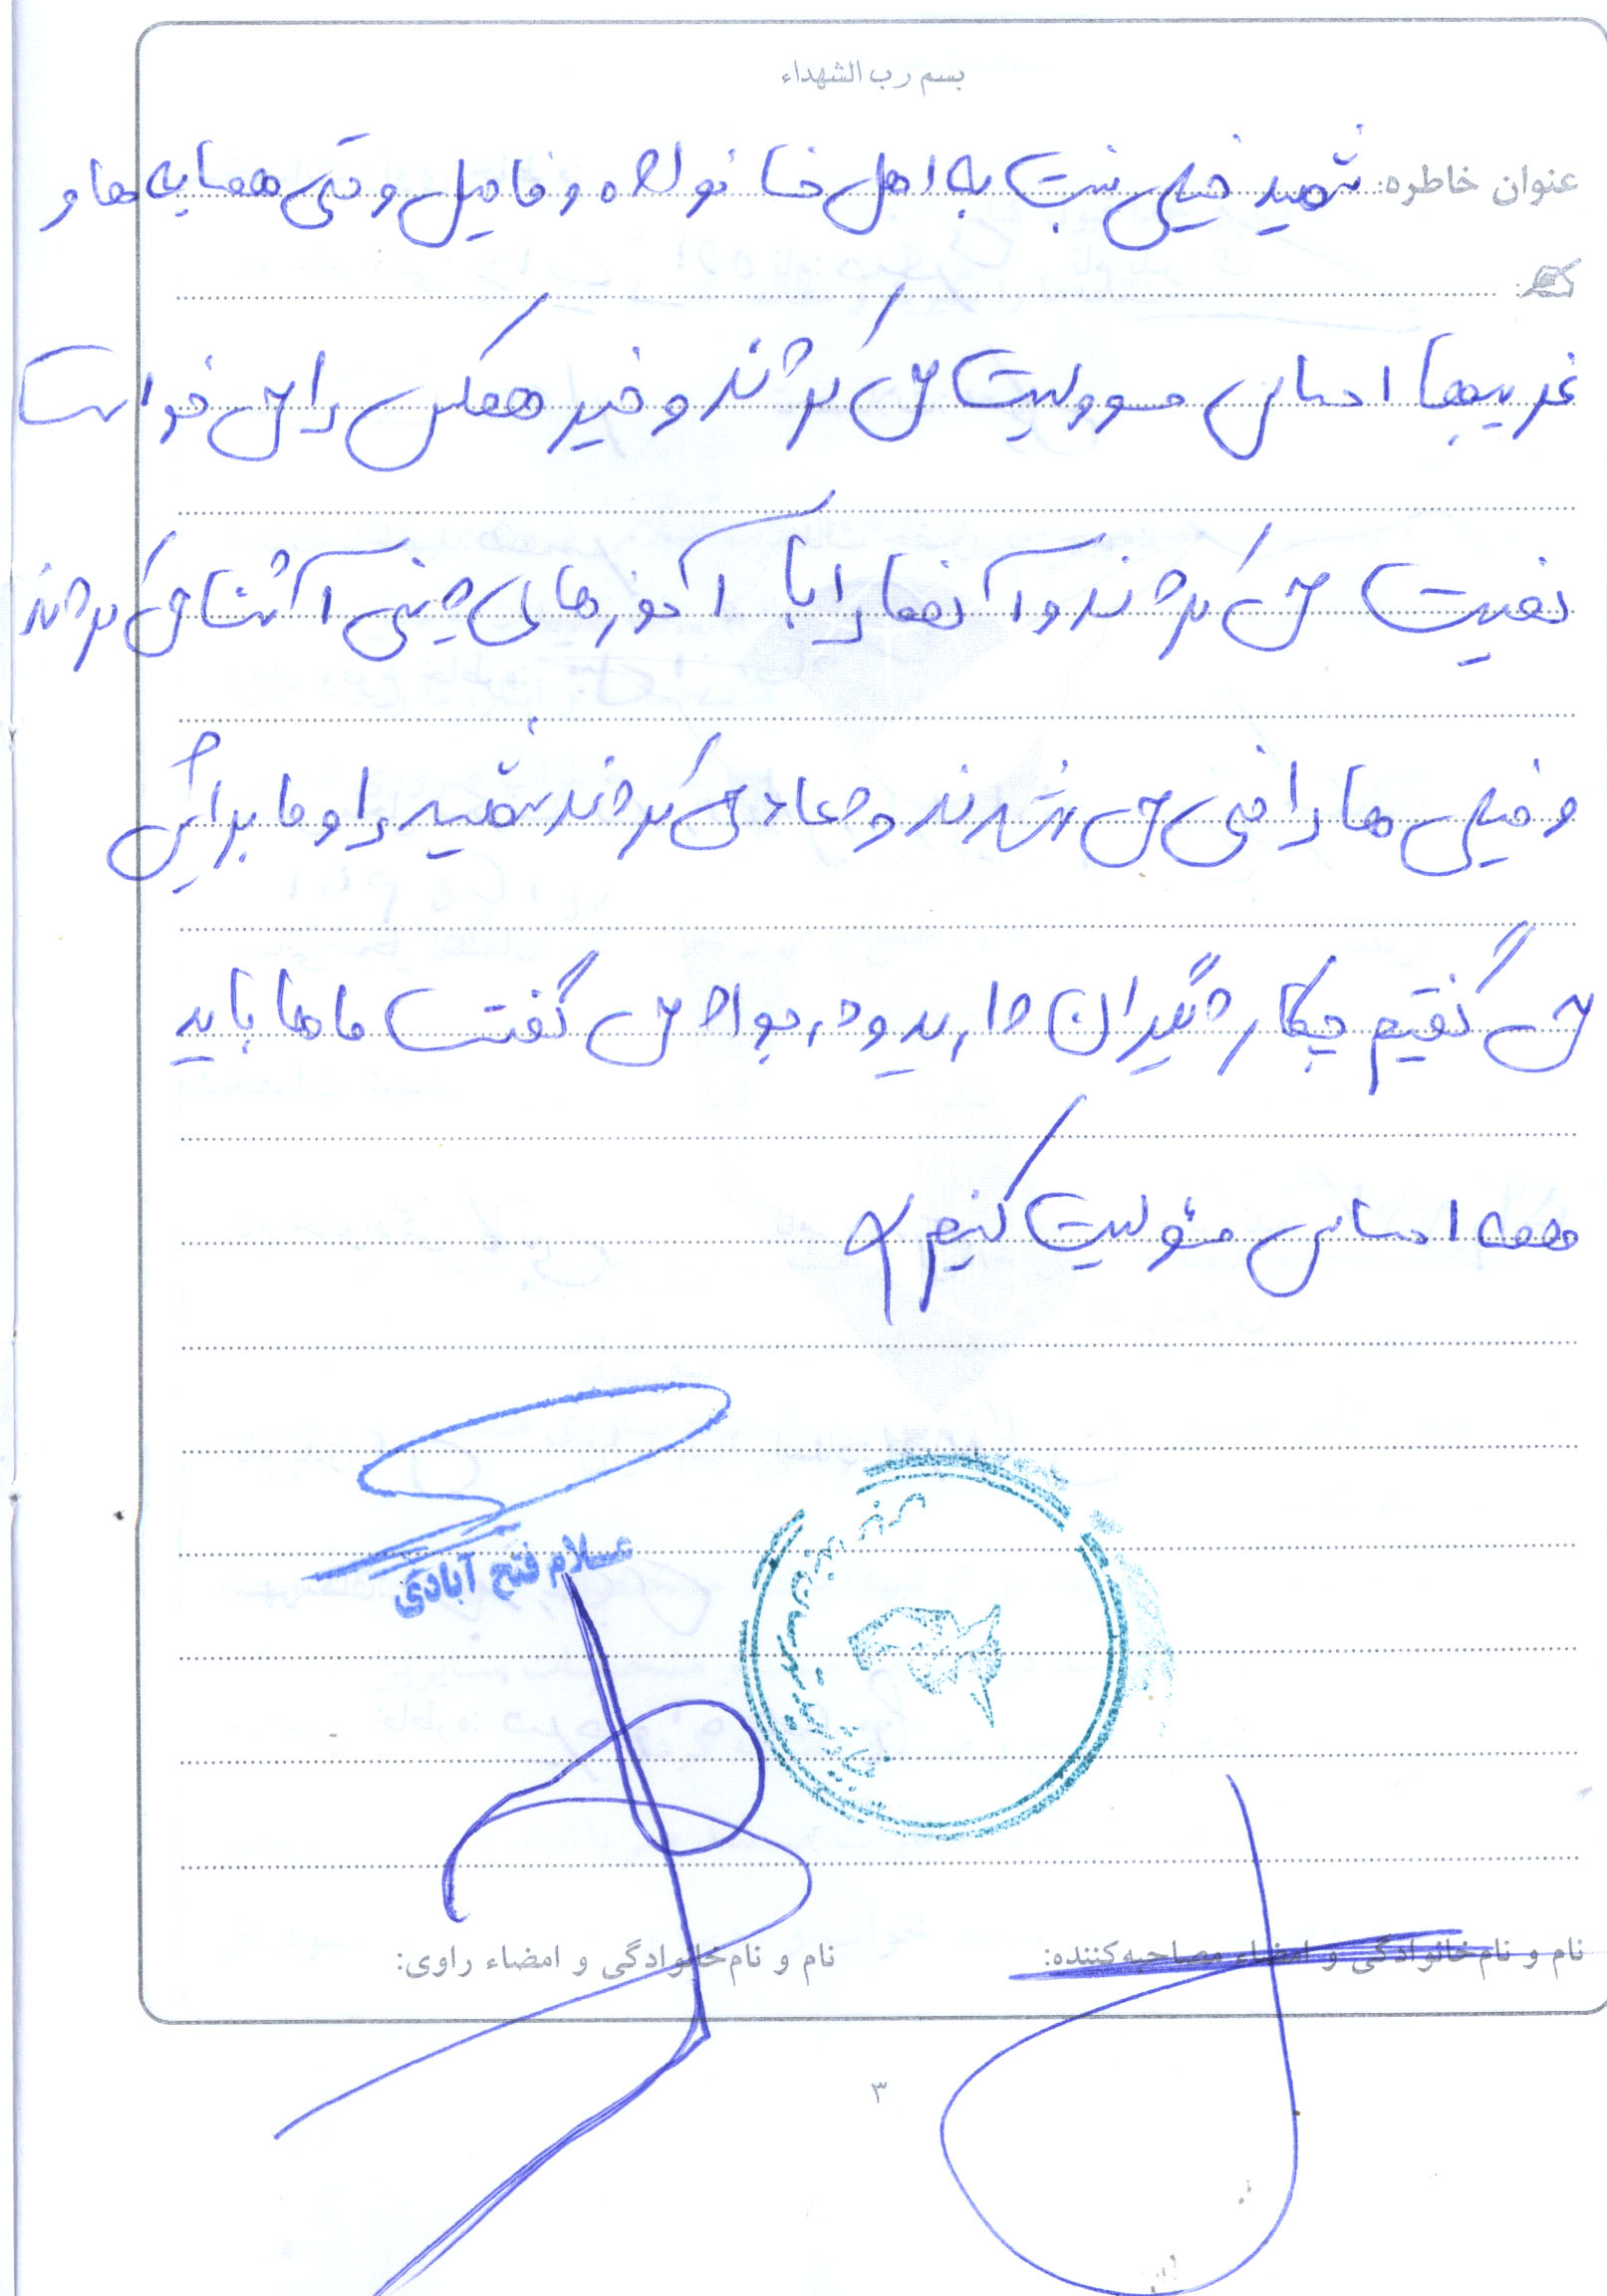 بسم رب الشهداء
عنوان خاطره: شهید خیلی نسبت به اهل خانواده و فامیل و حتی همسایه ها و
غریبها احساس مسوولیت می کردند و خیر همکس را می خواست
نصیحت می کردند و آنها را با آموزهای دینی آشنا می کردند
و خیلی ها راضی می شدند و دعا می کردند شهید را و ما برایش
می گفتیم چیکار دیگران دارید و در جواب می گفت ماها باید
همه احساس مئولیت کنیم
غلام فتح آبادی
نام و نام‌خانوادگی و امضاء مصاحبه‌کننده:
نام و نام‌خانوادگی و امضاء راوی:
۳